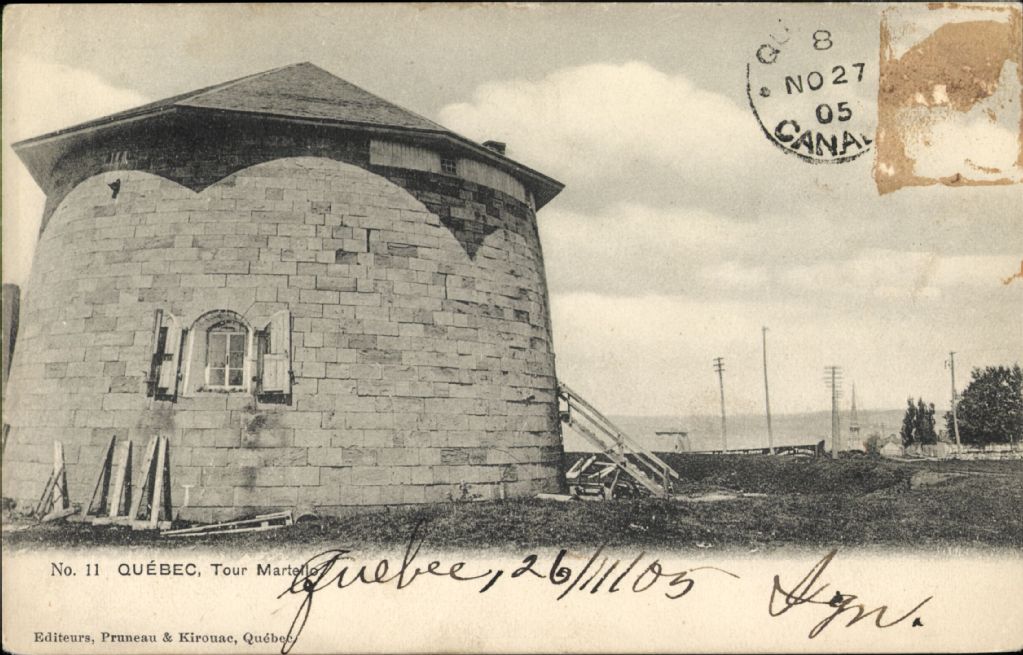 8
NO 27
05
CANA
No. 11 QUÉBEC, Tour Martello
Quebec, 26/11/05
Editeurs, Pruneau & Kirouac, Québec